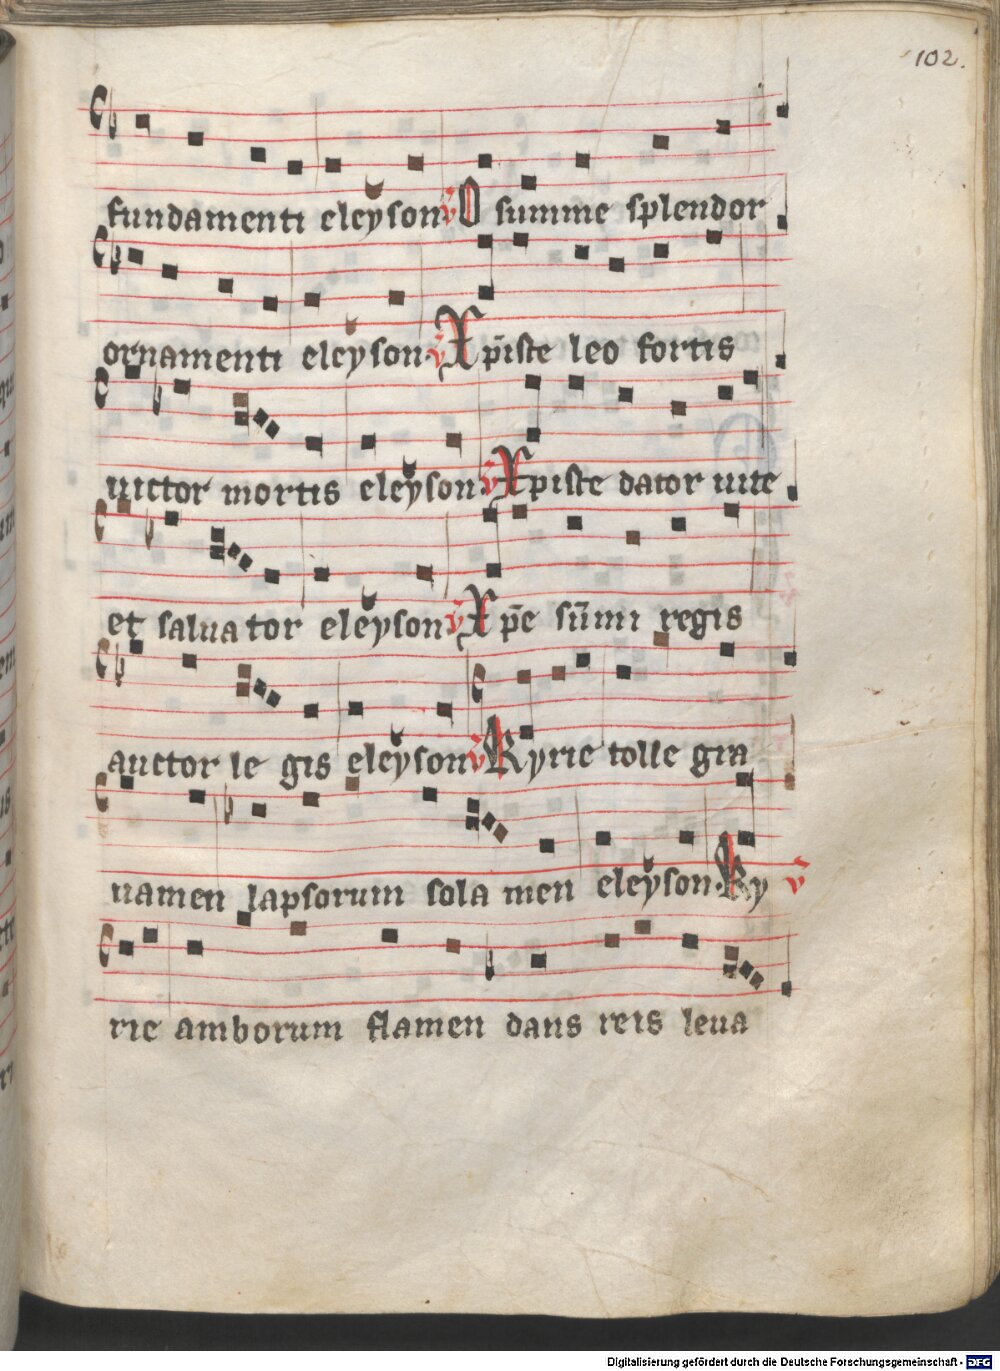 102.
fundamenti eleyson v̄ O summe splendor
ornamenti eleyson v̄ Xp̄iste leo fortis
uictor mortis eleyson v̄ Xpiste dator uite
et saluator eleyson v̄ Xp̄e sūmi regis
auctor legis eleyson v̄ Kyrie tolle gra
uamen lapsorum solamen eleyson Ky v̄
rie amborum flamen dans reis leua
Digitalisierung gefördert durch die Deutsche Forschungsgemeinschaft - DFG